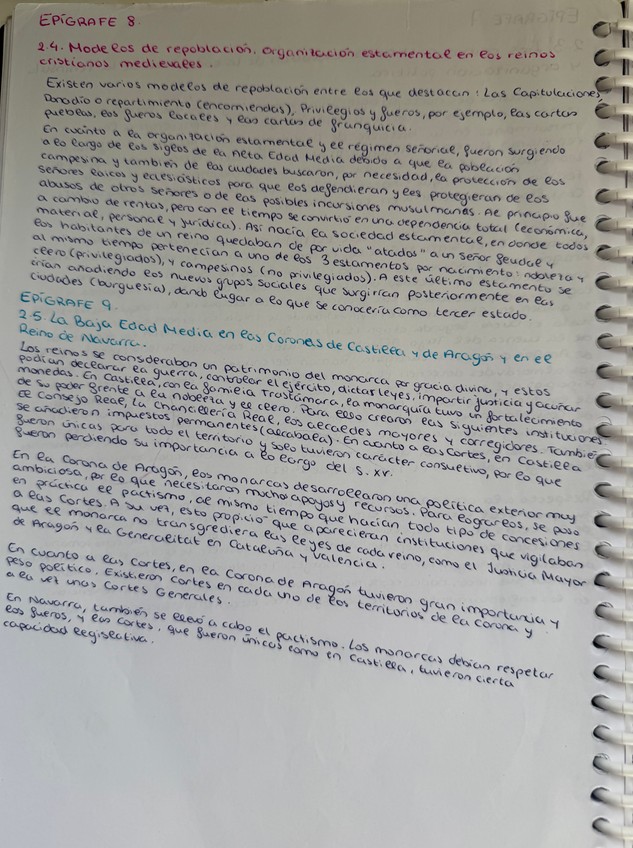 EPÍGRAFE 8.
2.4. Modelos de repoblación. Organización estamental en los reinos
cristianos medievales.
Existen varios modelos de repoblación entre los que destacan: Las Capitulaciones,
Donadío o repartimiento (encomiendas), Privilegios y fueros, por ejemplo, las cartas
pueblas, los fueros locales y las cartas de franquicia.
En cuanto a la organización estamental y el régimen señorial, fueron surgiendo
a lo largo de los siglos de la Alta Edad Media debido a que la población
campesina y también de las ciudades buscaron, por necesidad, la protección de los
señores laicos y eclesiásticos para que los defendieran y los protegieran de los
abusos de otros señores o de las posibles incursiones musulmanas. Al principio fue
a cambio de rentas, pero con el tiempo se convirtió en una dependencia total (económica,
material, personal y jurídica). Así nacía la sociedad estamental, en donde todos
los habitantes de un reino quedaban de por vida "atados" a un señor feudal y
al mismo tiempo pertenecían a uno de los 3 estamentos por nacimiento: nobleza y
clero (privilegiados), y campesinos (no privilegiados). A este último estamento se
irían añadiendo los nuevos grupos sociales que surgirían posteriormente en las
ciudades (burguesía), dando lugar a lo que se conocería como tercer estado.
EPÍGRAFE 9.
2.5. La Baja Edad Media en las Coronas de Castilla y de Aragón y en el
Reino de Navarra.
Los reinos se consideraban un patrimonio del monarca por gracia divina, y estos
podían declarar la guerra, controlar el ejército, dictar leyes, impartir justicia y acuñar
monedas. En Castilla, con la familia Trastámara, la monarquía tuvo un fortalecimiento
de su poder frente a la nobleza y el clero. Para ello crearon las siguientes instituciones:
El Consejo Real, la Chancillería Real, los alcaldes mayores y corregidores. También
se añadieron impuestos permanentes (alcabala). En cuanto a las Cortes, en Castilla
fueron únicas para todo el territorio y solo tuvieron carácter consultivo, por lo que
fueron perdiendo su importancia a lo largo del s. XV.
En la Corona de Aragón, los monarcas desarrollaron una política exterior muy
ambiciosa, por lo que necesitaron muchos apoyos y recursos. Para lograrlos, se puso
en práctica el pactismo, al mismo tiempo que hacían todo tipo de concesiones
a las Cortes. A su vez, esto propició que aparecieran instituciones que vigilaban
que el monarca no transgrediera las leyes de cada reino, como el Justicia Mayor
de Aragón y la Generalitat en Cataluña y Valencia.
En cuanto a las Cortes, en la Corona de Aragón tuvieron gran importancia y
peso político. Existieron Cortes en cada uno de los territorios de la Corona y
a la vez unas Cortes Generales.
En Navarra, también se llevó a cabo el pactismo. Los monarcas debían respetar
los fueros, y las Cortes, que fueron únicas como en Castilla, tuvieron cierta
capacidad legislativa.